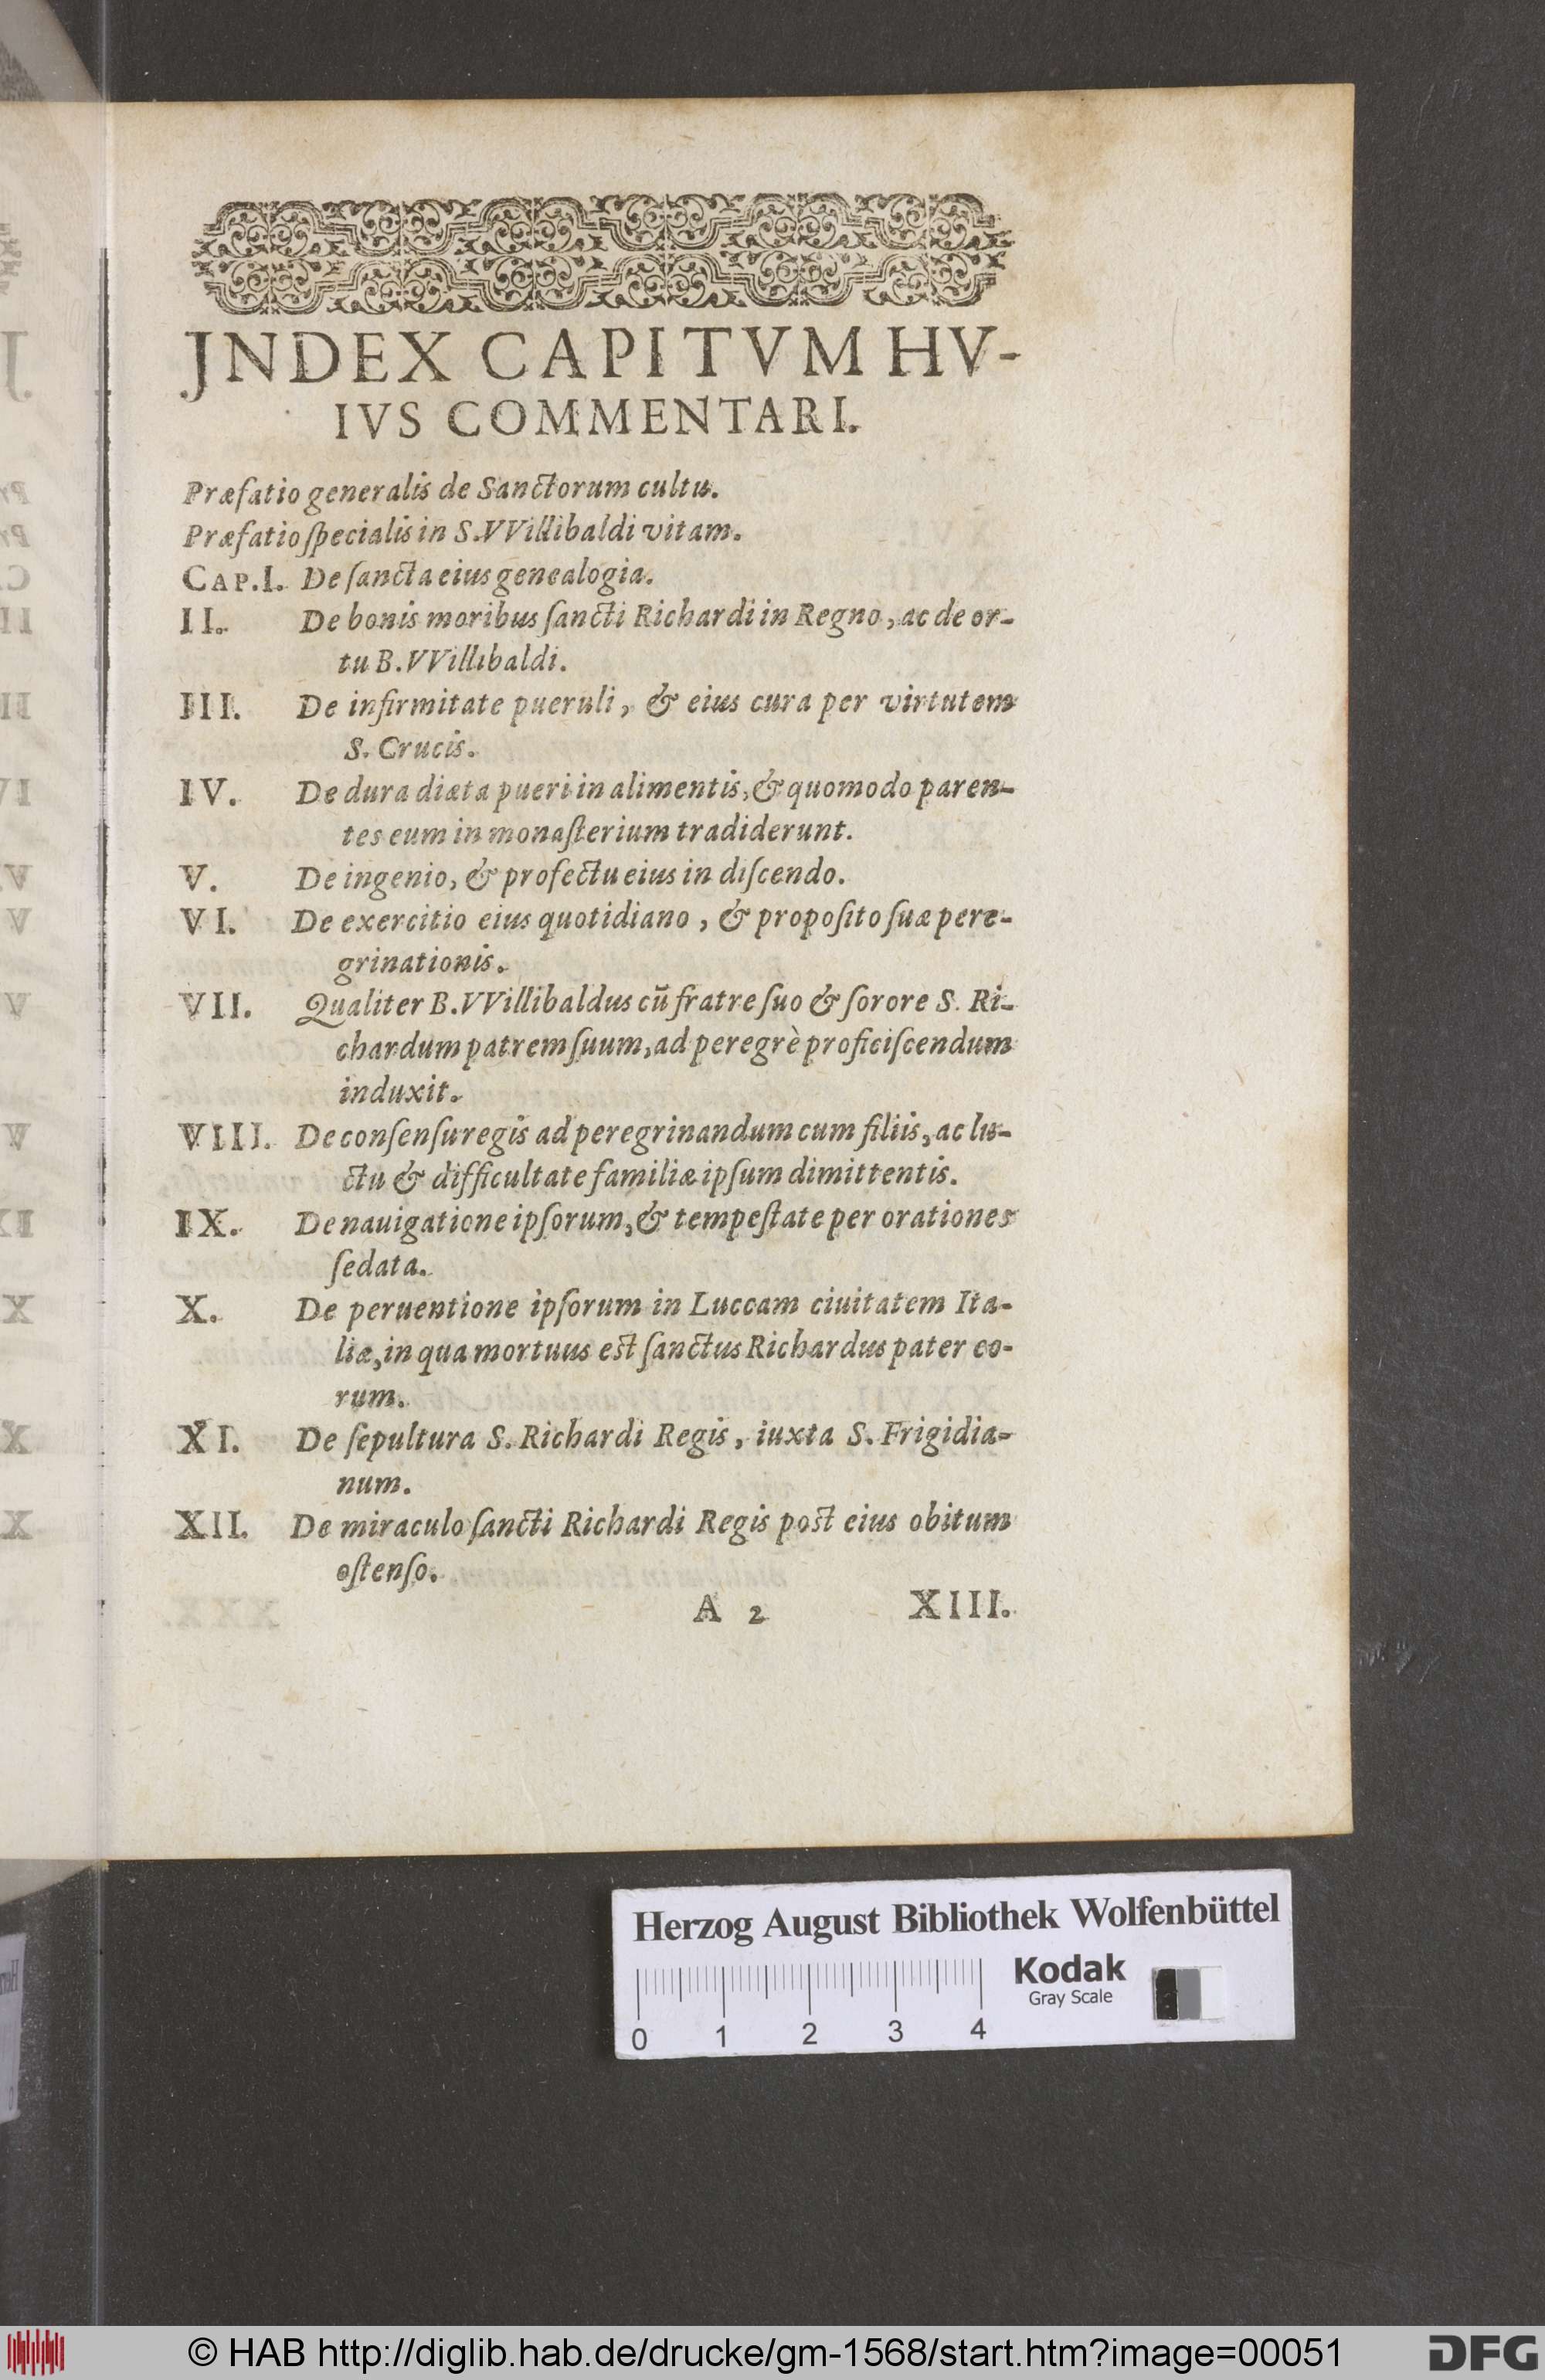 JNDEX CAPITVM HV-
IVS COMMENTARI.
Præfatio generalis de Sanctorum cultu.
Præfatio ſpecialis in S.VVillibaldi vitam.
CAP.I. De ſancta eius genealogia.
II. De bonis moribus ſancti Richardi in Regno, ac de or-
tu B.VVillibaldi.
III. De infirmitate pueruli, & eius cura per virtutem
S. Crucis.
IV. De dura diæta pueri in alimentis, & quomodo paren-
tes eum in monaſterium tradiderunt.
V. De ingenio, & profectu eius in diſcendo.
VI. De exercitio eius quotidiano, & propoſito ſuæ pere-
grinationis.
VII. Qualiter B.VVillibaldus cū fratre ſuo & ſorore S. Ri-
chardum patrem ſuum, ad peregrè proficiſcendum
induxit.
VIII. De conſenſu regis ad peregrinandum cum filiis, ac lu-
ctu & difficultate familiæ ipſum dimittentis.
IX. De nauigatione ipſorum, & tempeſtate per orationes
ſedata.
X. De peruentione ipſorum in Luccam ciuitatem Ita-
liæ, in qua mortuus eſt ſanctus Richardus pater eo-
rum.
XI. De ſepultura S. Richardi Regis, iuxta S. Frigidia-
num.
XII. De miraculo ſancti Richardi Regis poſt eius obitum
oſtenſo.
A 2 XIII.
Herzog August Bibliothek Wolfenbüttel
Kodak
Gray Scale
0 1 2 3 4
© HAB http://diglib.hab.de/drucke/gm-1568/start.htm?image=00051
DFG